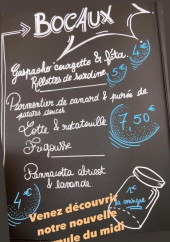 BOCAUX
Gaspacho courgette & fêta 4€
Rillettes de sardine 5€
Parmentier de canard & purée de
patates douces
Lotte & ratatouille 7,50€
Fregusse
Pannacotta abricot
& lavande 4€
1€
la consigne
Venez découvrir
notre nouvelle
formule du midi